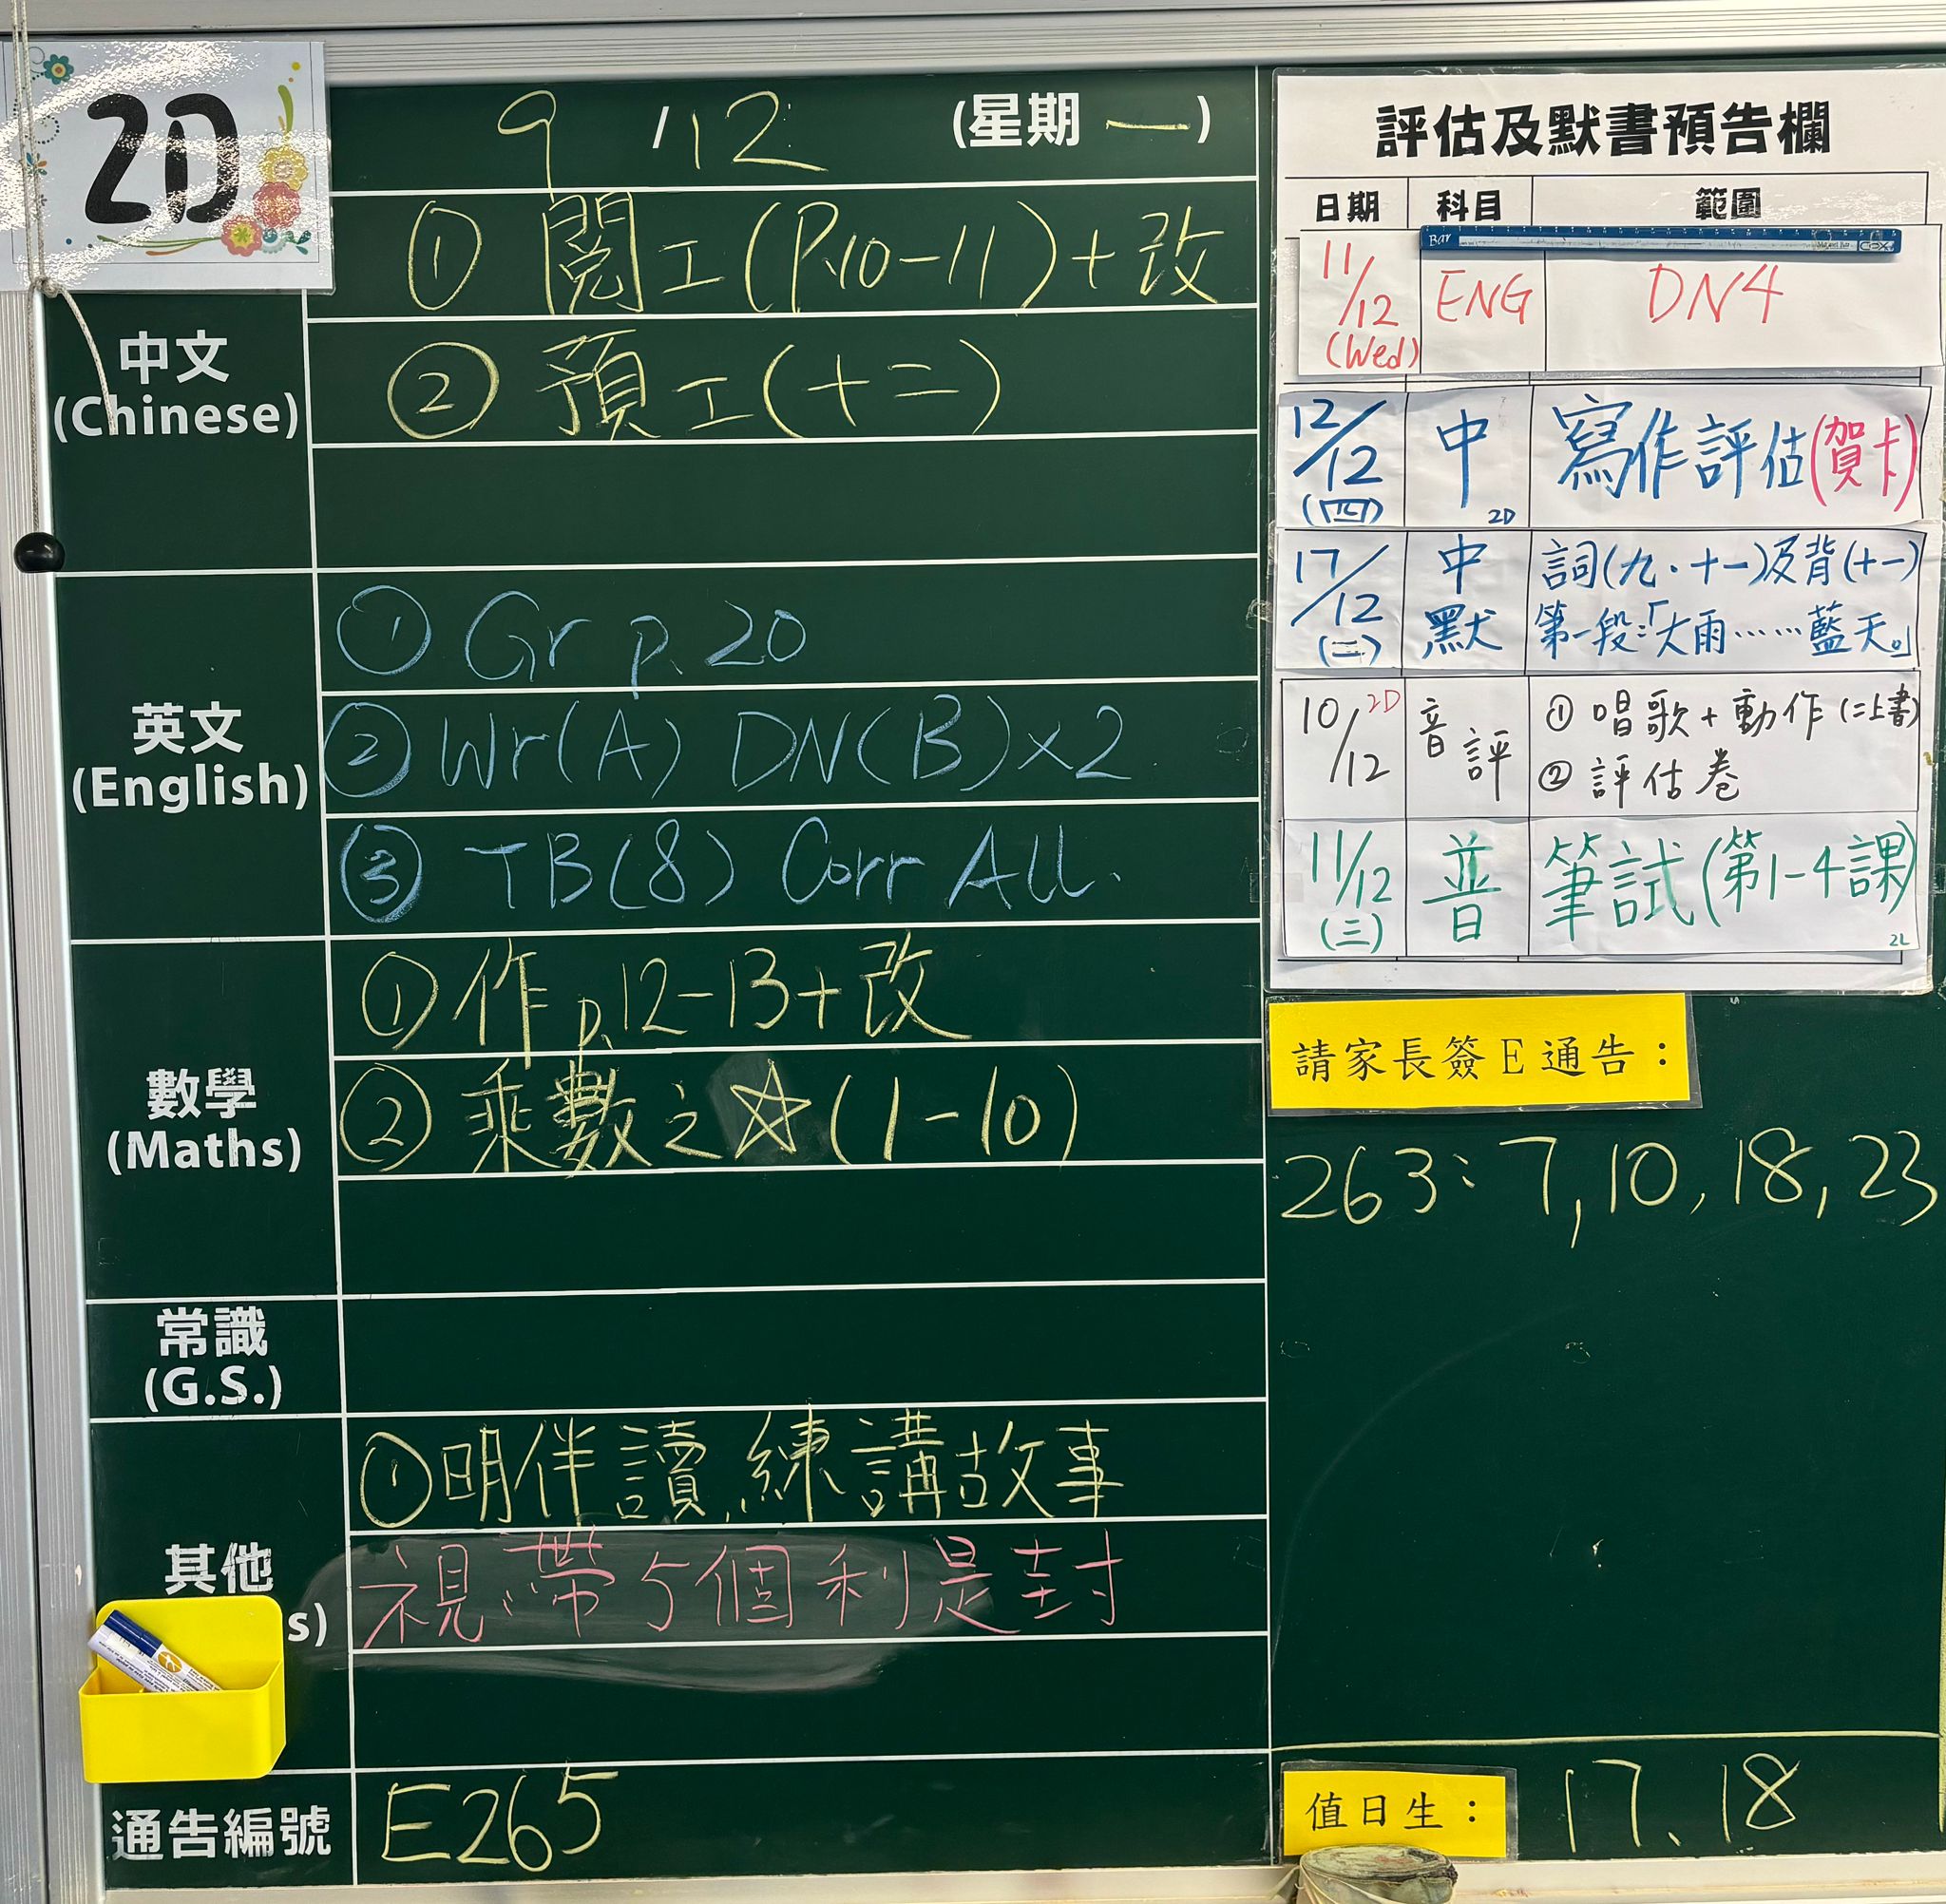 2D
9 / 12 (星期一)
中文
(Chinese)
① 閱工(P.10-11)+改
② 預工(十二)
英文
(English)
① Gr p.20
② Wr(A) DN(B)×2
③ TB(8) Corr All.
數學
(Maths)
① 作p.12-13+改
② 乘數之☆(1-10)
常識
(G.S.)
其他
s)
① 明伴讀,練講故事
視:帶5個利是封
通告編號
E265
評估及默書預告欄
日期 科目 範圍
11/12 (Wed) ENG DN4
12/12 (四) 中 2D 寫作評估(賀卡)
17/12 (二) 中默 詞(九·十一)及背(十一)
第一段:「大雨……藍天。」
10/12 2D 音評 ① 唱歌+動作(二上書)
② 評估卷
11/12 (三) 普 筆試(第1-4課) 2L
請家長簽E通告:
263: 7, 10, 18, 23
值日生: 17、18